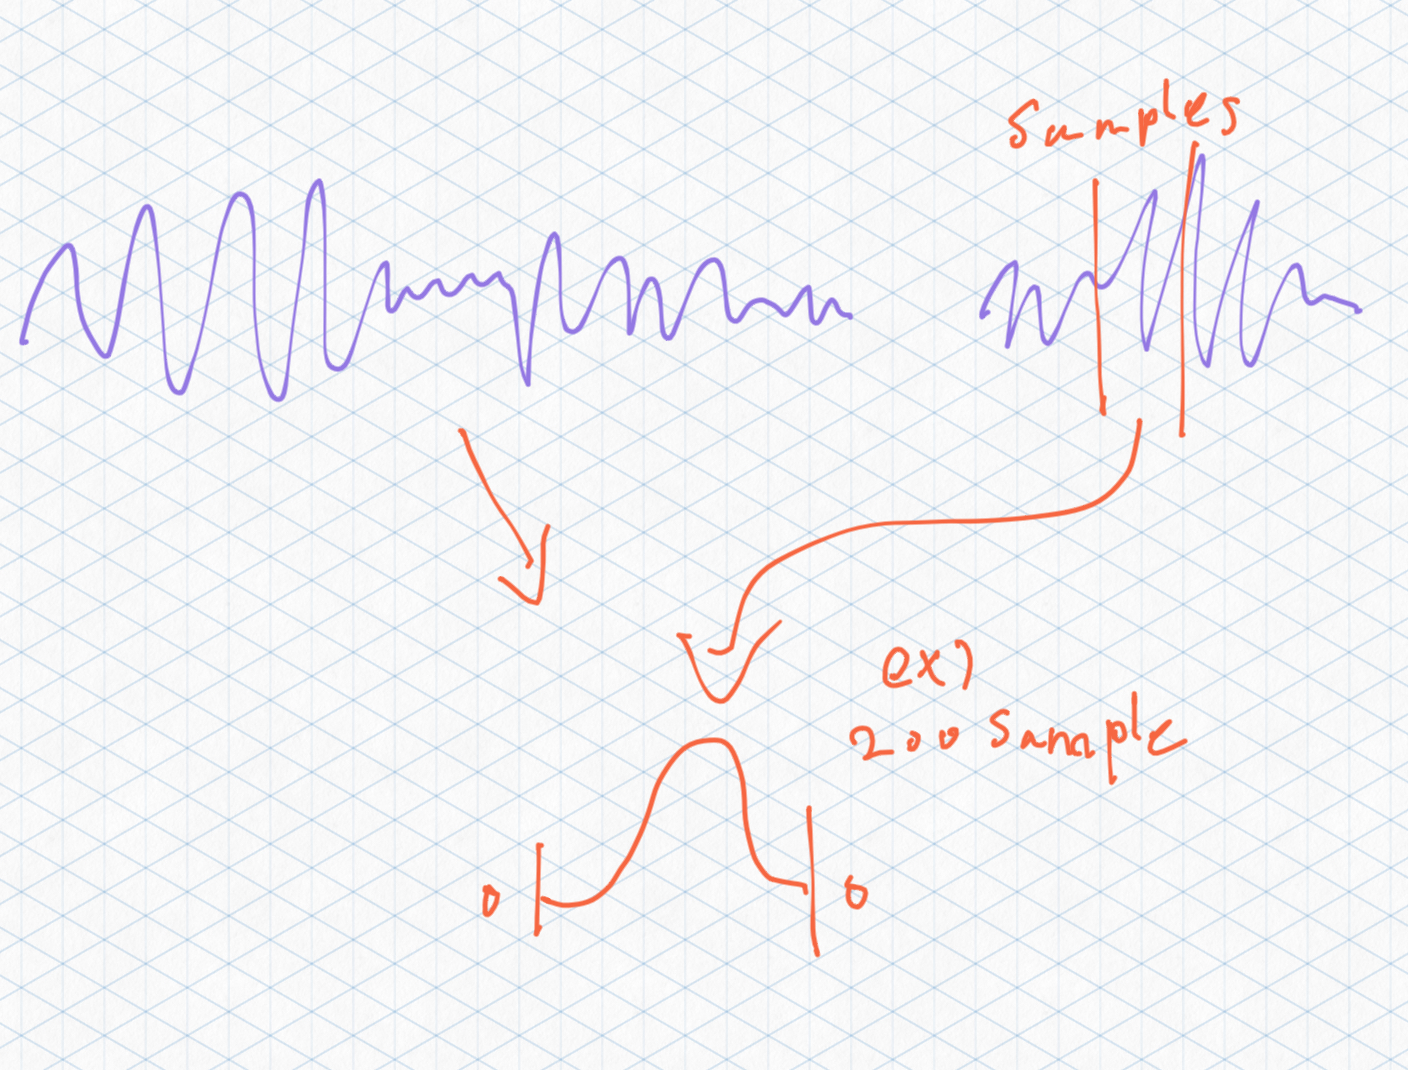 Samples
ex)
200 sample
0 0